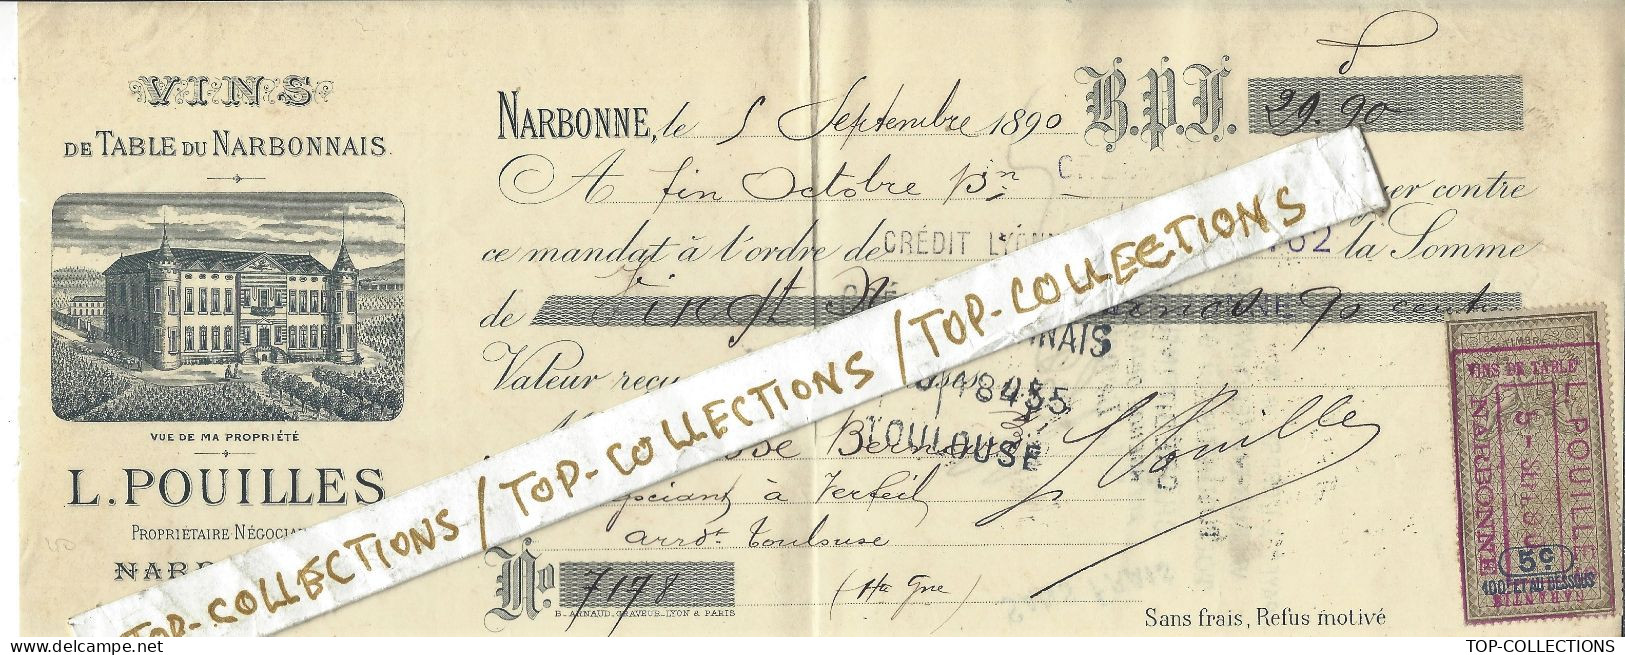 VINS
DE TABLE DU NARBONNAIS
VUE DE MA PROPRIÉTÉ
L. POUILLES
PROPRIÉTAIRE NÉGOCIA
NARB
NARBONNE, le 5 Septembre 1890 B.P.F. 29.90
A fin Octobre pin er contre
ce mandat à l'ordre de CRÉDIT LYONN 762 la Somme
de Vingt N 90 centim
Valeur reçu
NNAIS
18435
TOULOUSE
Bernard
L Pouilles
à Verfeil
arrdt Toulouse
No 7198 (Hte Gne)
B. ARNAUD, GRAVEUR_LYON & PARIS
Sans frais, Refus motivé
VINS DE TABLE
L. POUILLES
5 - SEPT 90
NARBONNE
5c
100F ET AU DESSOUS
TOP-COLLECTIONS / TOP-COLLECTIONS / TOP-COLLECTIONS
TOP-COLLECTIONS